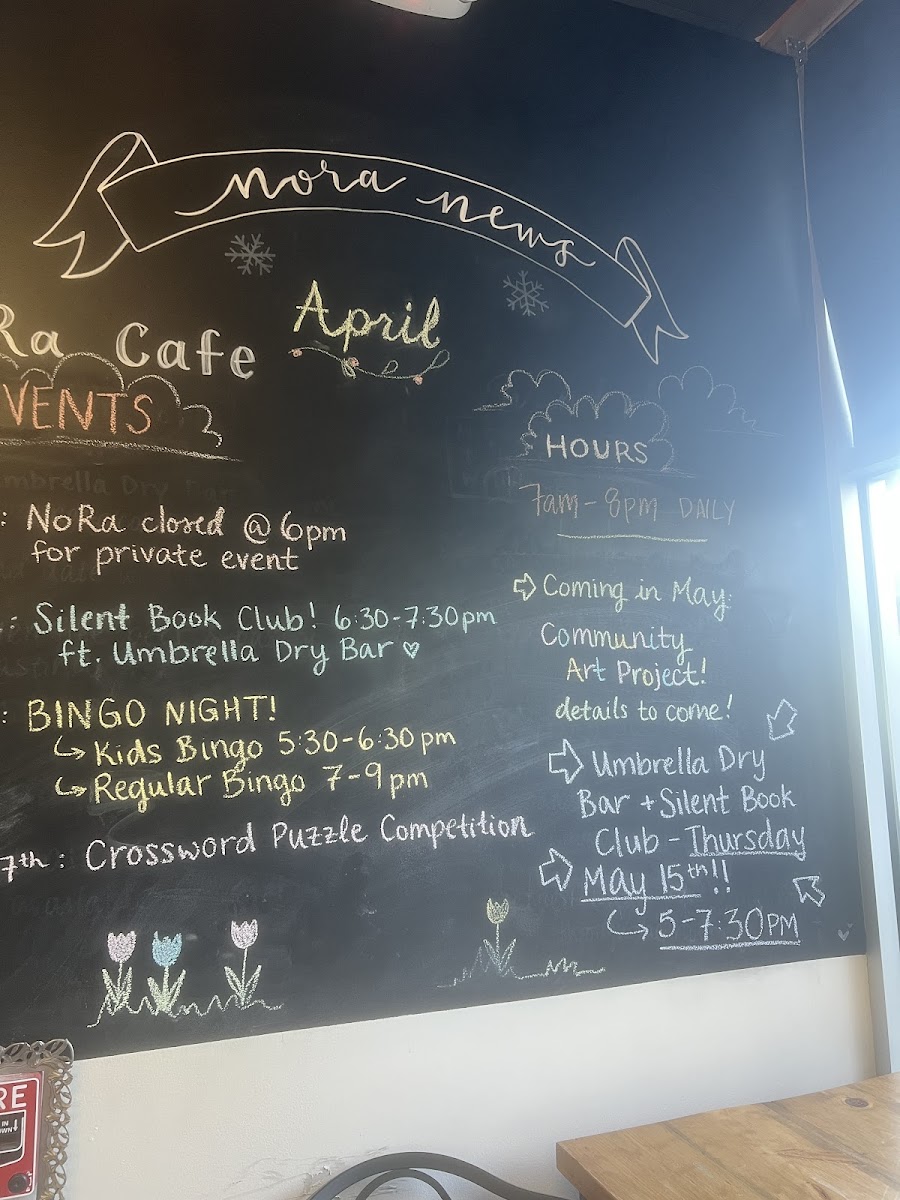 nora news
April
Ra Cafe
VENTS
: NoRa closed @ 6pm
for private event
: Silent Book Club! 6:30-7:30pm
ft. Umbrella Dry Bar ♡
: BINGO NIGHT!
↪ Kids Bingo 5:30-6:30pm
↪ Regular Bingo 7-9pm
7th: Crossword Puzzle Competition
HOURS
7am - 8pm DAILY
⇨ Coming in May:
Community
Art Project!
details to come!
⇨ Umbrella Dry
Bar + Silent Book
Club - Thursday
⇨ May 15th!!
↪ 5-7:30PM
RE
IN